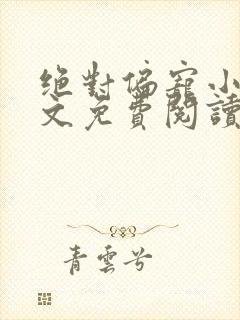 絕對偏寵小
文免費閱讀
青雲兮